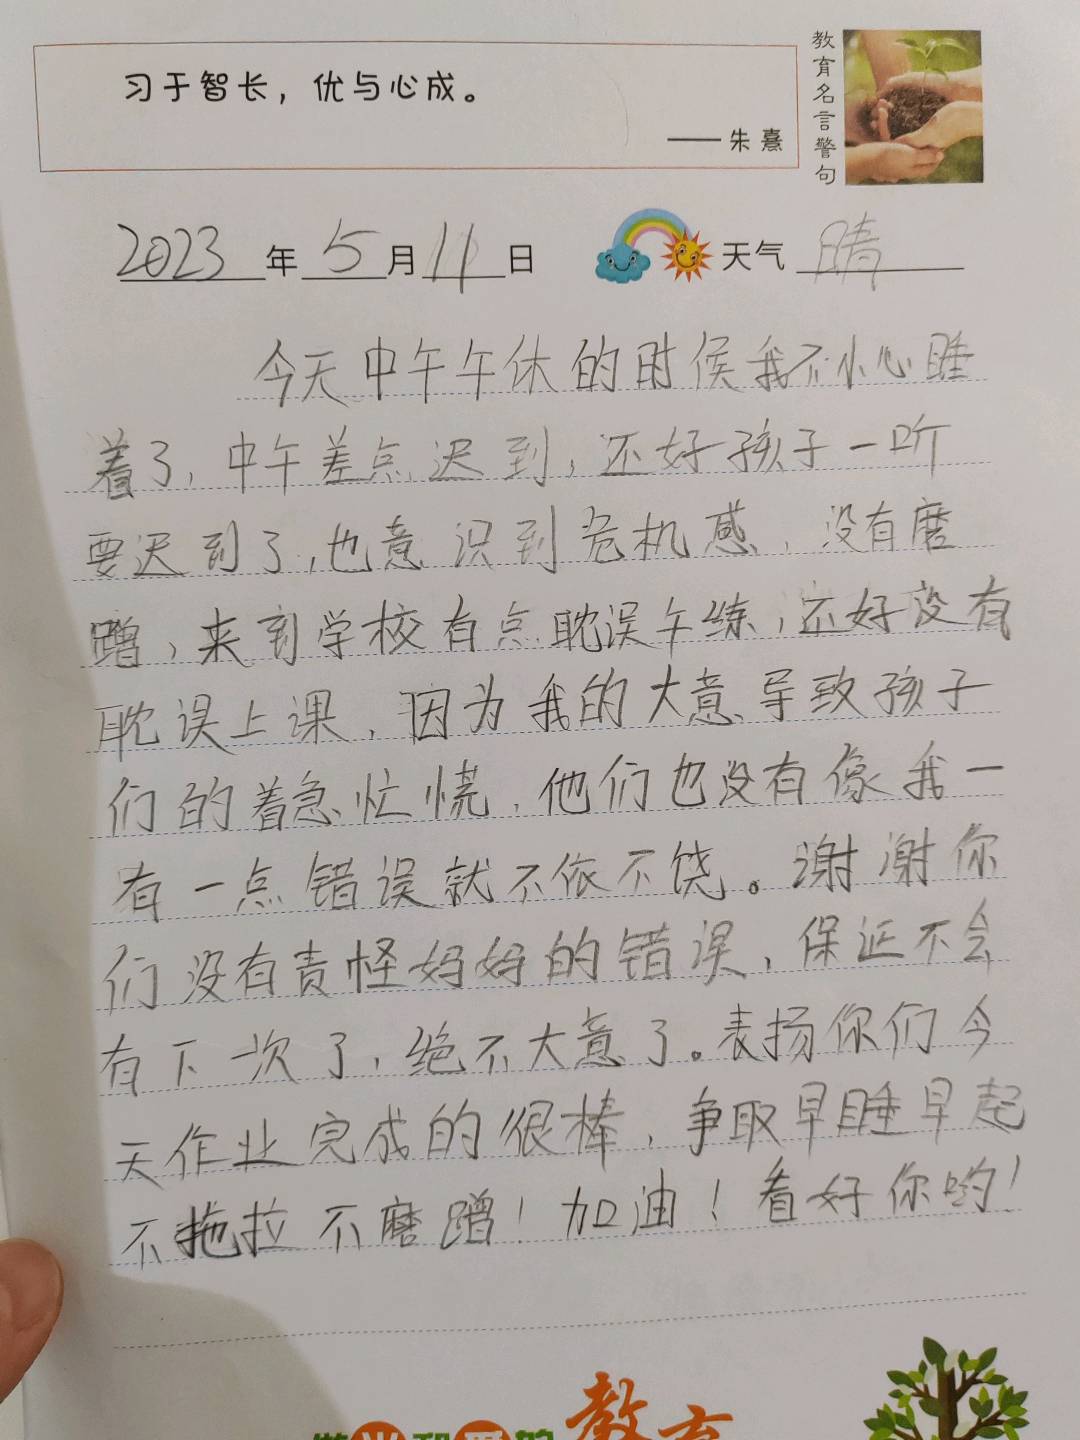 习于智长，优与心成。
——朱熹
教育名言警句
2023年5月11日 天气 晴
今天中午午休的时候我不小心睡
着了，中午差点迟到，还好孩子一听
要迟到了，也意识到危机感，没有磨
蹭，来到学校有点耽误午练，还好没有
耽误上课，因为我的大意导致孩子
们的着急忙慌，他们也没有像我一
有一点错误就不依不饶。谢谢你
们没有责怪妈妈的错误，保证不会
有下一次了，绝不大意了。表扬你们今
天作业完成的很棒，争取早睡早起
不拖拉不磨蹭！加油！看好你哟！
教育